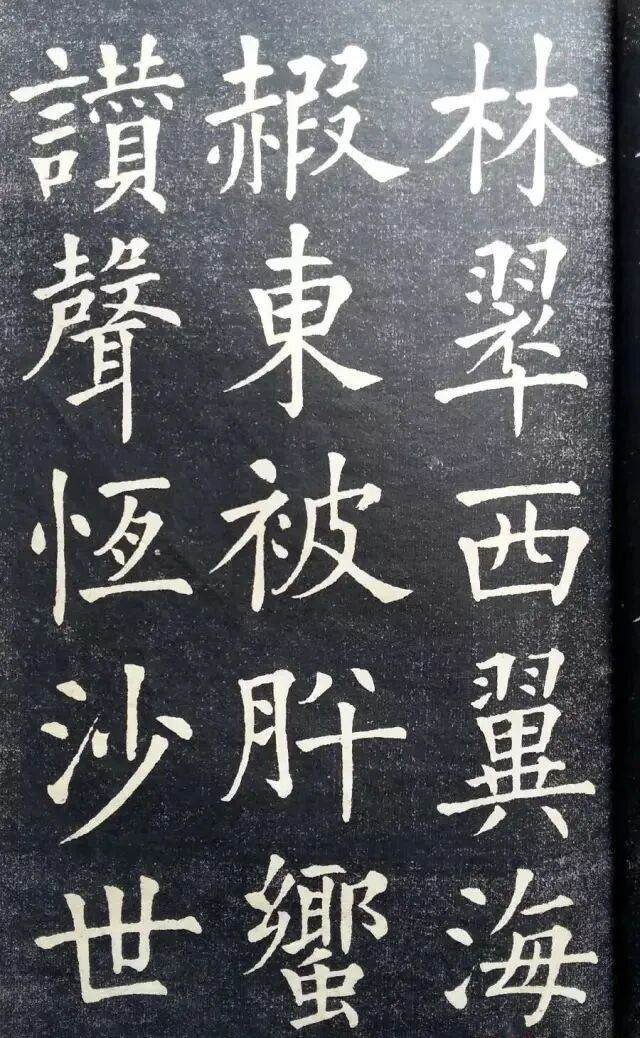 林翠西翼海
赮東被肸蠁
讚聲恆沙世